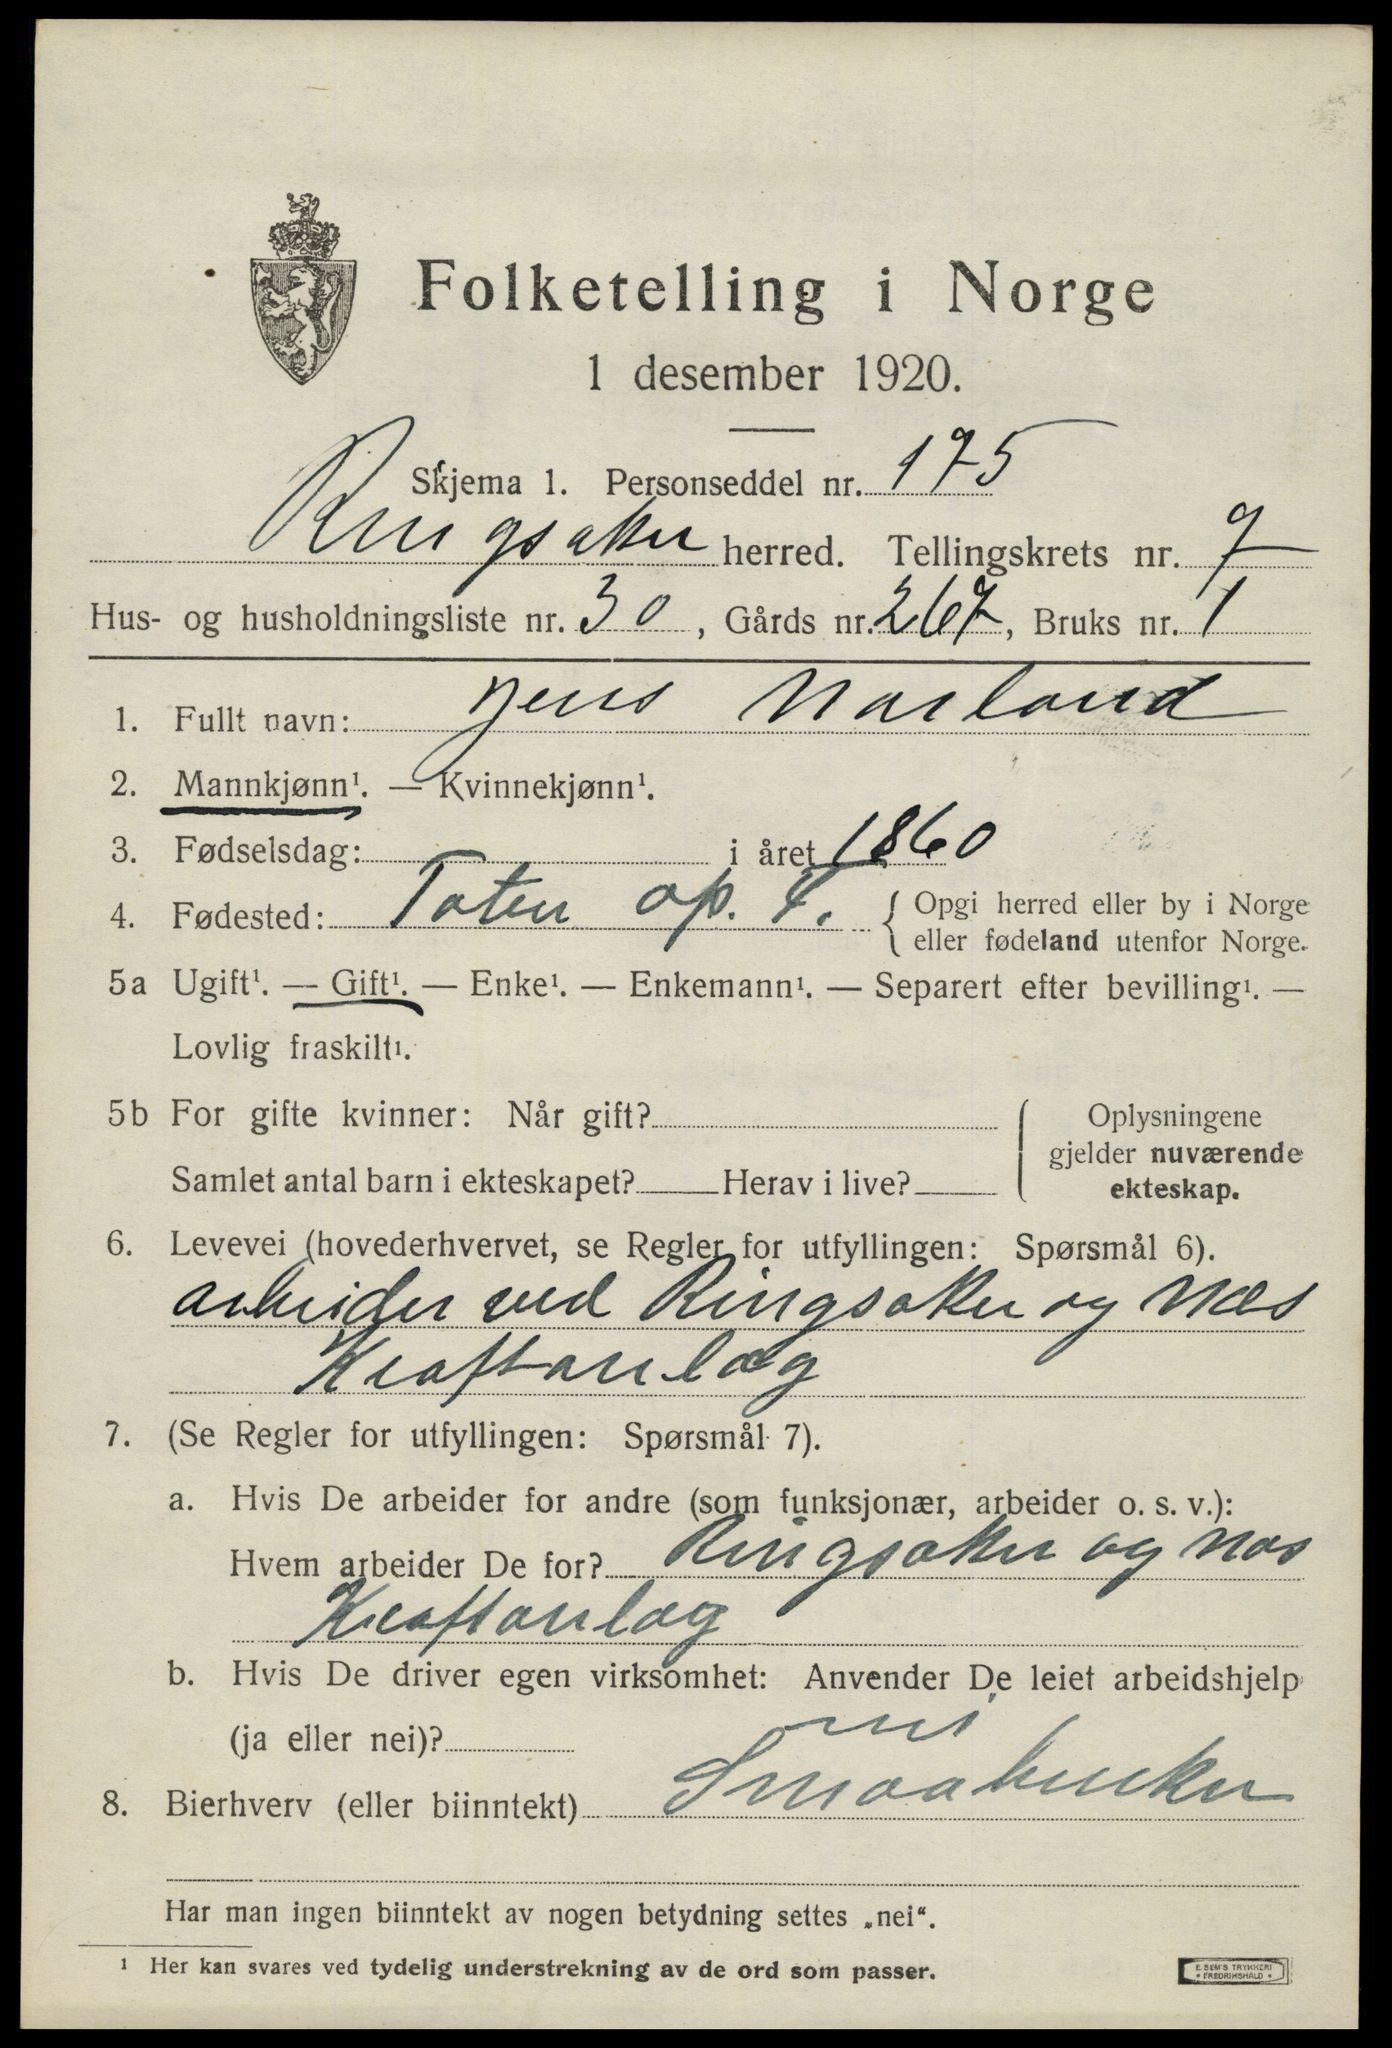 Folketelling i Norge
1 desember 1920.
Skjema 1. Personseddel nr. 175
Ringsaker herred. Tellingskrets nr. 7
Hus- og husholdningsliste nr. 30, Gårds nr. 267, Bruks nr. 1
1. Fullt navn: Jens Norland
2. Mannkjønn¹. — Kvinnekjønn¹.
3. Fødselsdag: i året 1860
4. Fødested: Toten op. T. { Opgi herred eller by i Norge
eller fødeland utenfor Norge.
5a Ugift¹. — Gift¹. — Enke¹. — Enkemann¹. — Separert efter bevilling¹. —
Lovlig fraskilt¹.
5b For gifte kvinner: Når gift?
Samlet antal barn i ekteskapet? Herav i live?
Oplysningene
gjelder nuværende
ekteskap.
6. Levevei (hovederhvervet, se Regler for utfyllingen: Spørsmål 6).
arbeider ved Ringsaker og Næs
Kraftanlæg
7. (Se Regler for utfyllingen: Spørsmål 7).
a. Hvis De arbeider for andre (som funksjonær, arbeider o. s. v.):
Hvem arbeider De for? Ringsaker og Næs
Kraftanlæg
b. Hvis De driver egen virksomhet: Anvender De leiet arbeidshjelp
(ja eller nei)? nei
8. Bierhverv (eller biinntekt) Smaabruker
Har man ingen biinntekt av nogen betydning settes „nei“.
¹ Her kan svares ved tydelig understrekning av de ord som passer.
E. SEM'S TRYKKERI
FREDRIKSHALD